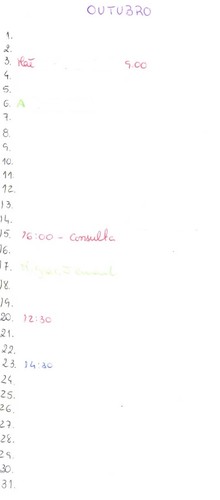 OUTUBRO
1.
2.
3. 9.00
4.
5.
6. A
7.
8.
9.
10.
11.
12.
13.
14.
15. 16:00 - Consulta
16.
17.
18.
19.
20. 12:30
21.
22.
23. 14:30
24.
25.
26.
27.
28.
29.
30.
31.